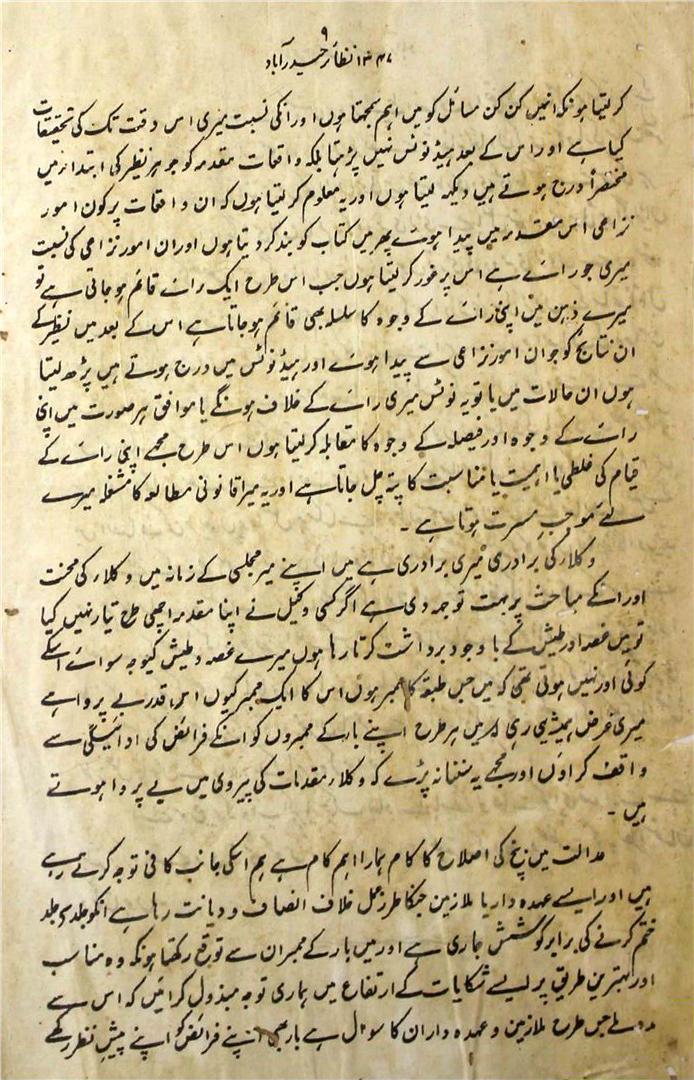 ۹
۱۳۴۷ نظائر حیدرآباد
کر لیتا ہونکہ انہیں کن کن مسائل کو میں اہم سمجھتا ہوں اور انکی نسبت میری اس وقت تک کی تحقیقات
کیا ہے اور اس کے بعد ہیڈ نوٹس نہیں پڑھتا بلکہ واقعات مقدمہ کو جو ہر نظیر کی ابتداء میں
مختصراً درج ہوتے ہیں دیکھ لیتا ہوں اور یہ معلوم کر لیتا ہوں کہ ان واقعات پر کون امور
نزاعی اس مقدمہ میں پیدا ہوئے پھر میں کتاب کو بند کر دیتا ہوں اور ان امور نزاعی کی نسبت
میری جو رائے ہے اس پر غور کر لیتا ہوں جب اس طرح ایک رائے قائم ہو جاتی ہے تو
میرے ذہن میں اپنی رائے کے وجوہ کا سلسلہ بھی قائم ہو جاتا ہے اس کے بعد میں نظیر کے
ان نتائج کو جو ان امور نزاعی سے پیدا ہوئے اور ہیڈ نوٹس میں درج ہوتے ہیں پڑھ لیتا
ہوں ان حالات میں یا تو یہ نوٹس میری رائے کے خلاف ہونگے یا موافق ہر صورت میں اپنی
رائے کے وجوہ اور فیصلہ کے وجوہ کا مقابلہ کر لیتا ہوں اس طرح مجھے اپنی رائے کے
قیام کی غلطی یا اہمیت یا مناسبت کا پتہ چل جاتا ہے اور یہ میرا قانونی مطالعہ کا مشغلہ میرے
لئے موجب مسرت ہوتا ہے ۔
وکلاء کی برادری میری برادری ہے میں اپنے میر مجلسی کے زمانہ میں وکلاء کی محنت
اور انکے مباحث پر بہت توجہ دی ہے اگر کسی وکیل نے اپنا مقدمہ اچھی طرح تیار نہیں کیا
تو میں غصہ اور طیش کے باوجود برداشت کرتا رہا ہوں میرے غصہ و طیش کیوجہ سوائے اسکے
کوئی اور نہیں ہوتی تھی کہ میں جس طبقہ کا ممبر ہوں اس کا ایک ممبر کیوں اس قدر بے پروا ہے
میری غرض ہمیشہ یہی رہی کہ میں ہر طرح اپنے بار کے ممبروں کو انکے فرائض کی ادائیگی سے
واقف کراؤں اور مجھے یہ سننا نہ پڑے کہ وکلاء مقدمات کی پیروی میں بے پروا ہوتے
ہیں ۔
عدالت میں بنچ کی اصلاح کا کام ہمارا اہم کام ہے ہم اسکی جانب کافی توجہ کرتے رہے
ہیں اور ایسے عہدہ دار یا ملازمین جنکا طرز عمل خلاف انصاف و دیانت رہا ہے انکو جلد سے جلد
ختم کرنے کی برابر کوشش جاری ہے اور میں بار کے ممبران سے توقع رکھتا ہونکہ وہ مناسب
اور بہترین طریق پر ایسے شکایات کے ارتفاع میں ہماری توجہ مبذول کرائیں کہ اس سے
جس طرح ملازمین و عہدہ داران کا سوال ہے بار بھی اپنے فرائض کو اپنے پیش نظر رکھے